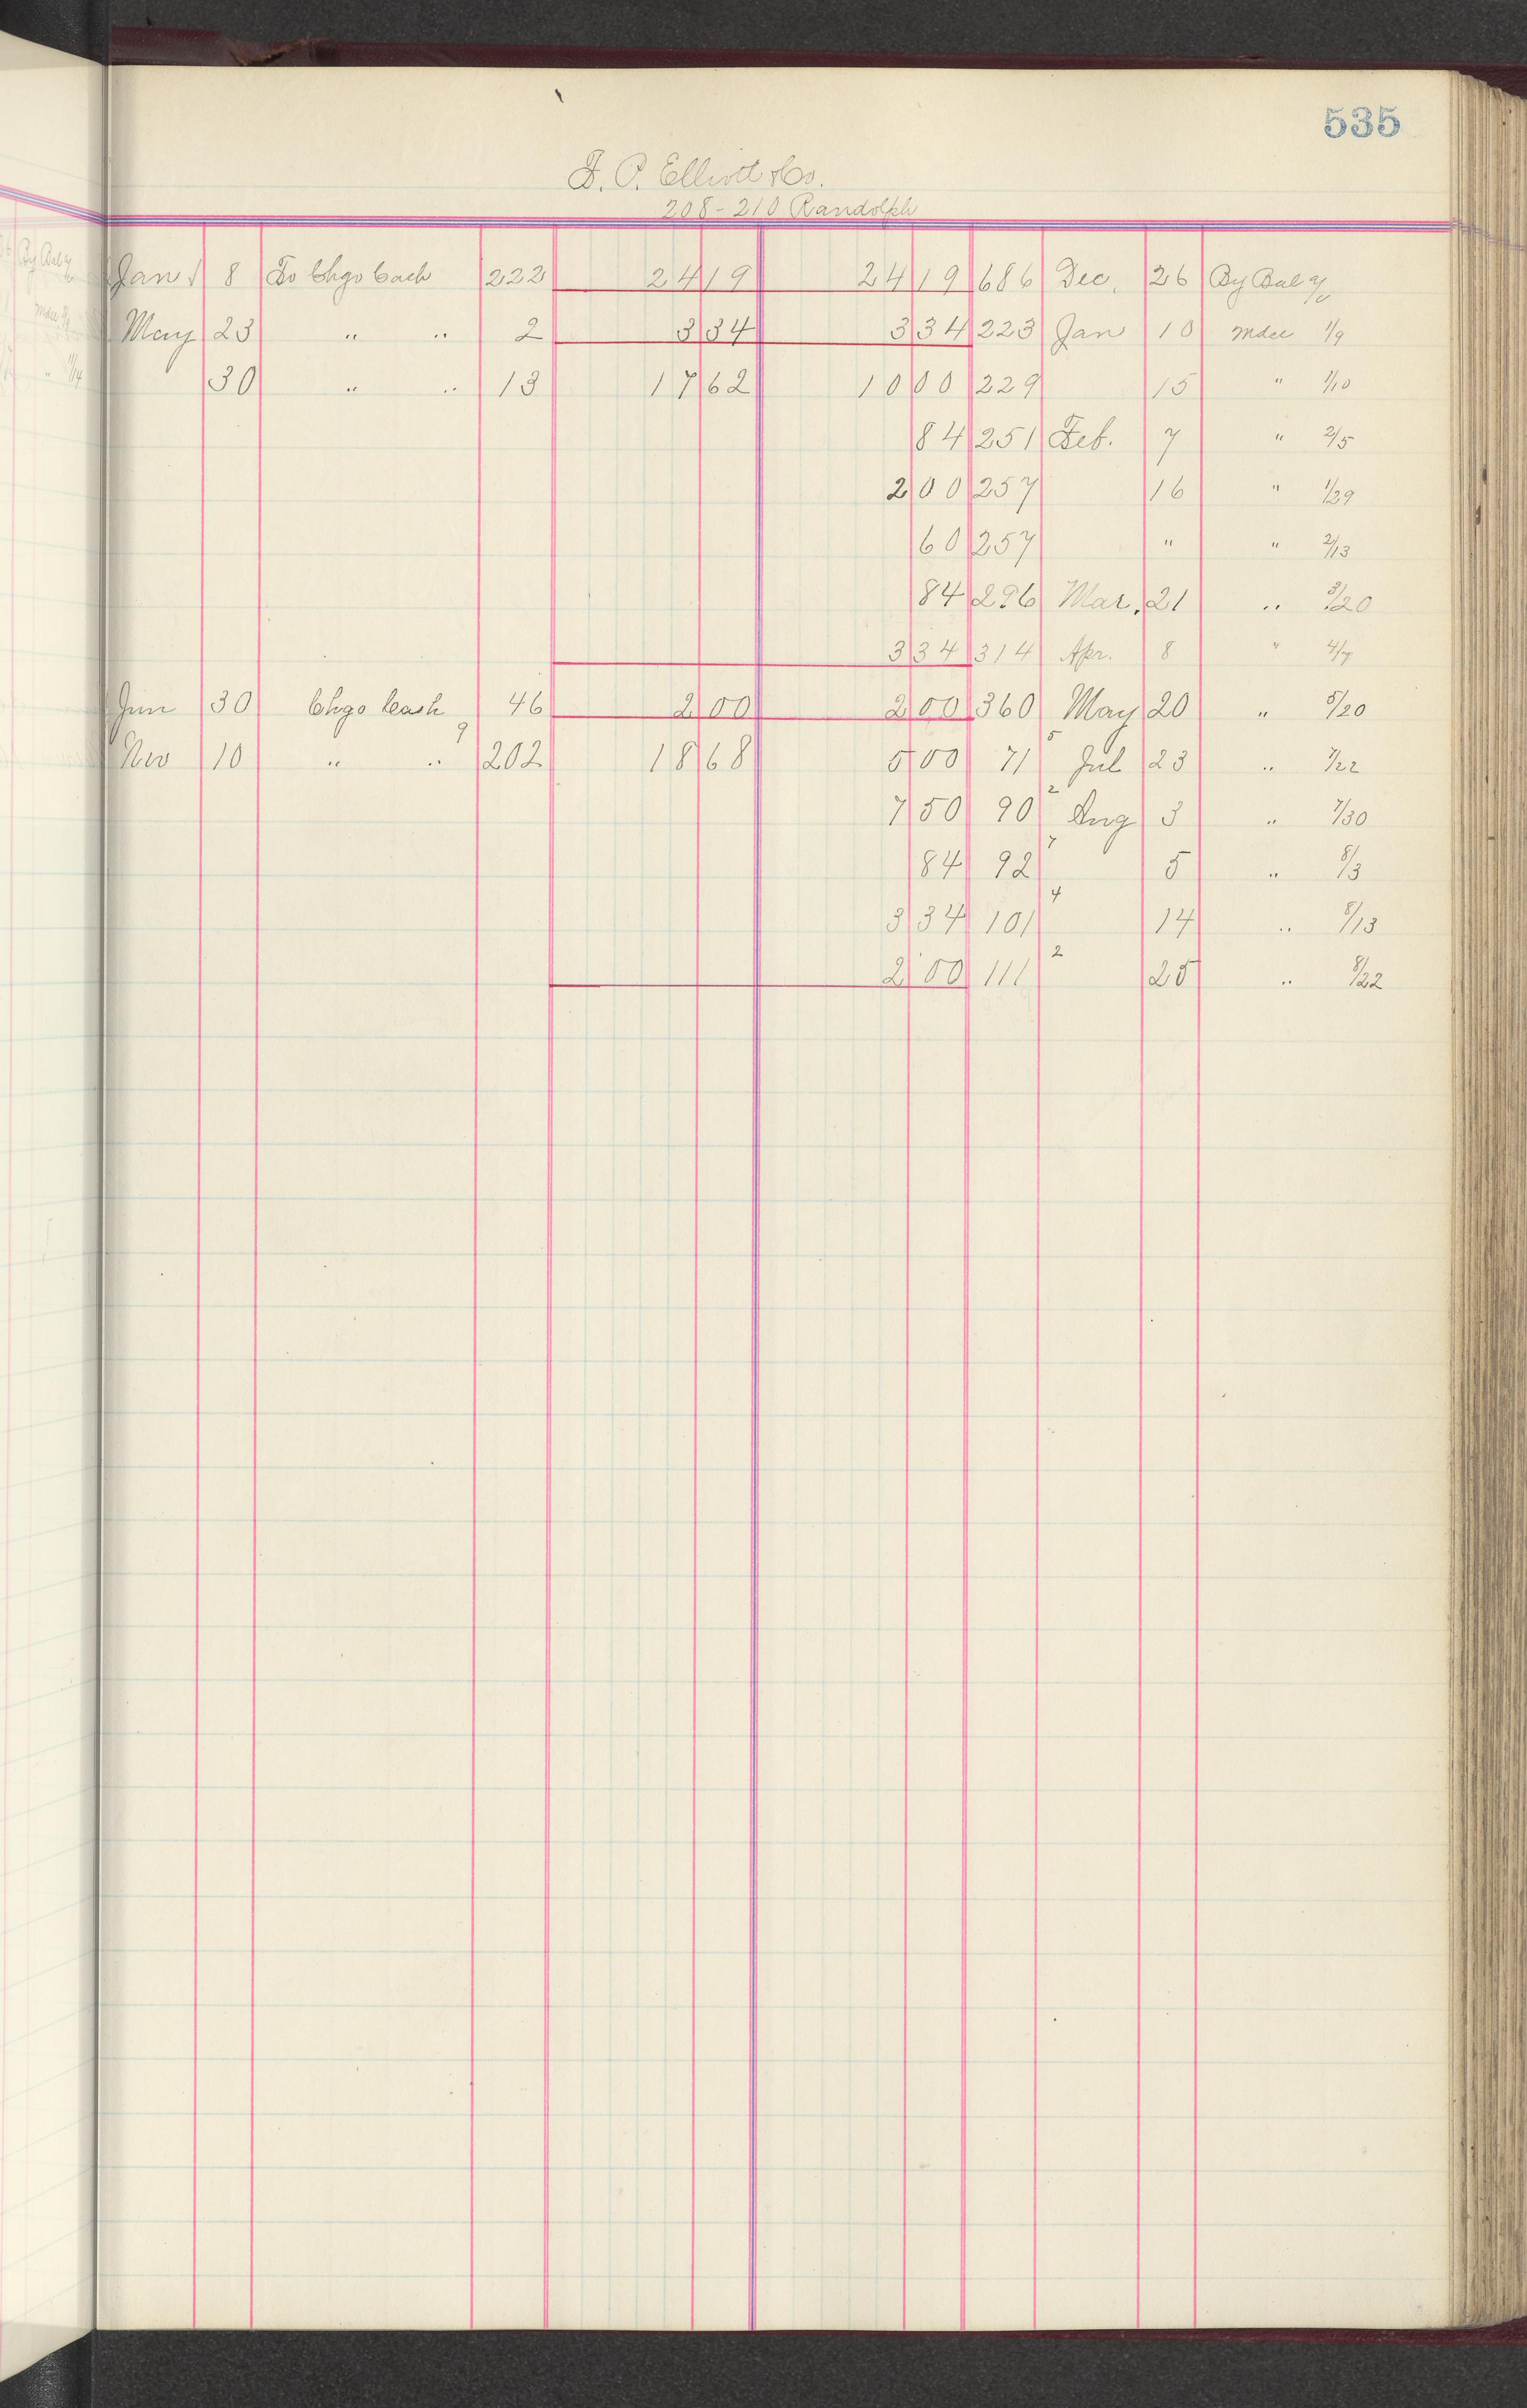 535
F. P. Elliott & Co.
208-210 Randolph
Jan 8 To Chgo Cash 222 24 19 24 19 686 Dec. 26 By Bal a/c
May 23 " " 2 3 34 3 34 223 Jan 10 Mdse 1/9
30 " " 13 17 62 10 00 229 15 " 1/10
84 251 Feb. 7 " 2/5
2 00 257 16 " 1/29
60 257 " " 2/13
84 296 Mar. 21 " 3/20
3 34 314 Apr. 8 " 4/7
Jun 30 Chgo Cash 46 2 00 2 00 360 May 20 " 5/20
Nov 10 " " 9 202 18 68 5 00 71 5 Jul 23 " 7/22
7 50 90 2 Aug 3 " 7/30
84 92 7 5 " 8/3
3 34 101 4 14 " 8/13
2 00 111 2 25 " 8/22